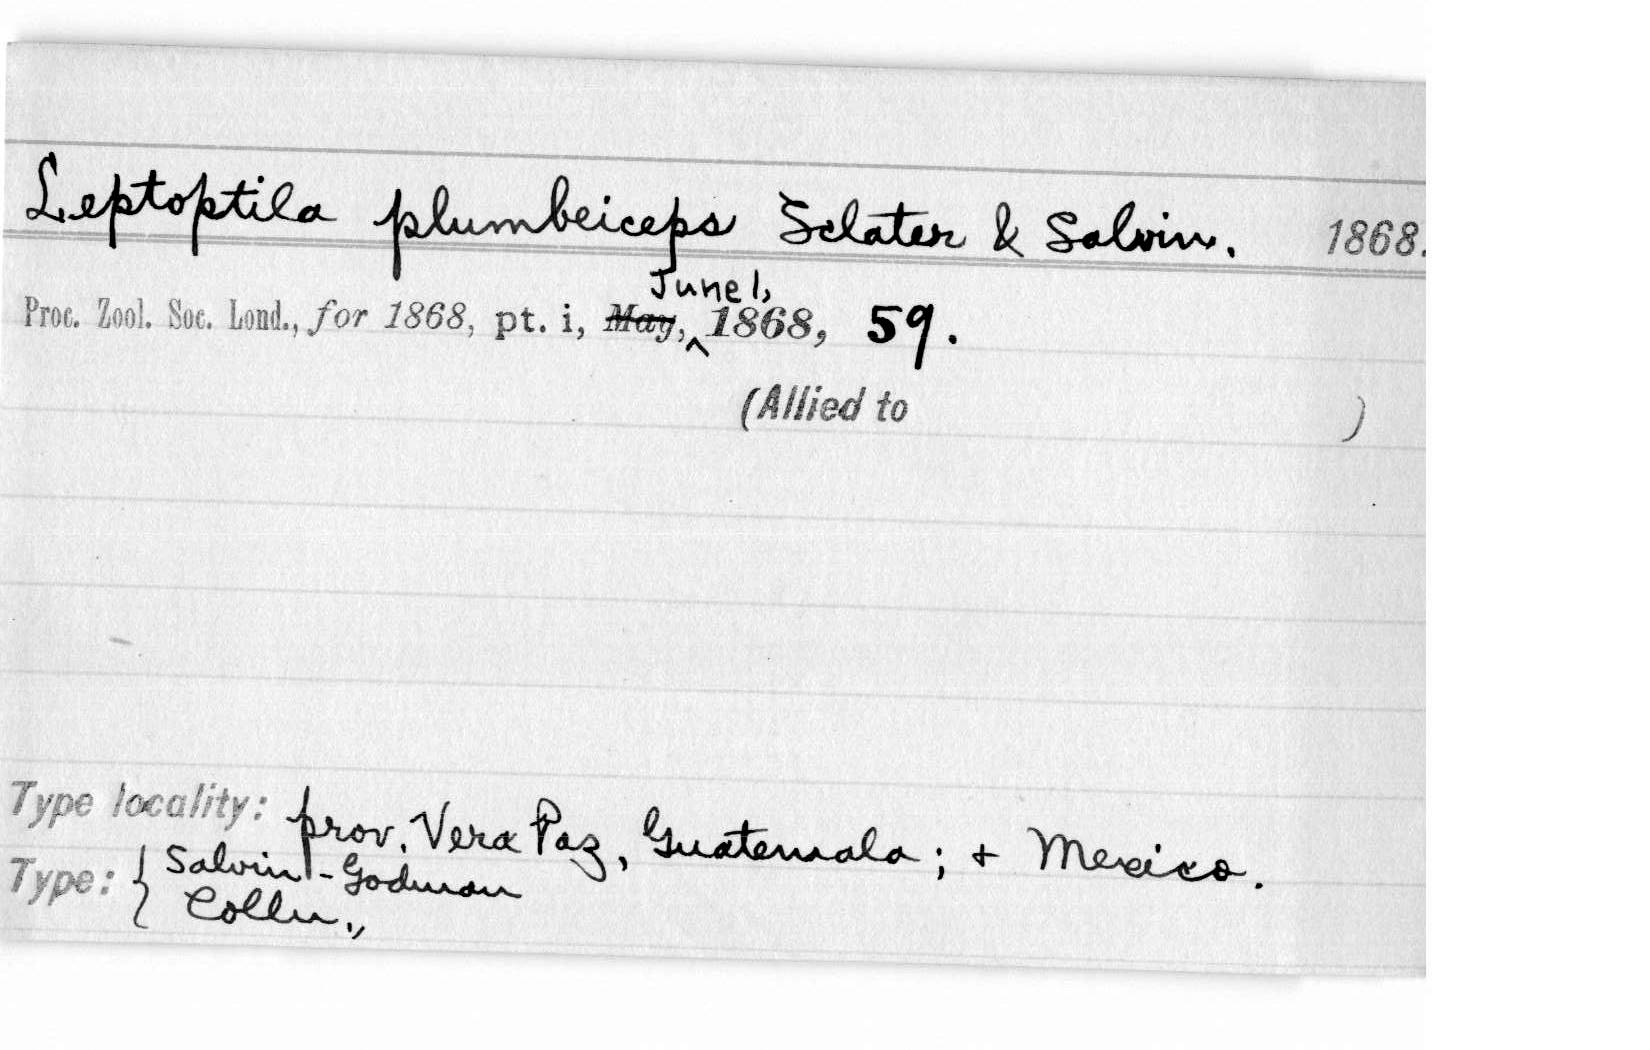 Leptoptila plumbeiceps Sclater & Salvin. 1868.
June 1,
Proc. Zool. Soc. Lond., for 1868, pt. i, May, ^ 1868, 59.
(Allied to )
Type locality: prov. Vera Paz, Guatemala; + Mexico.
Type: { Salvin-Godman
Colln.,